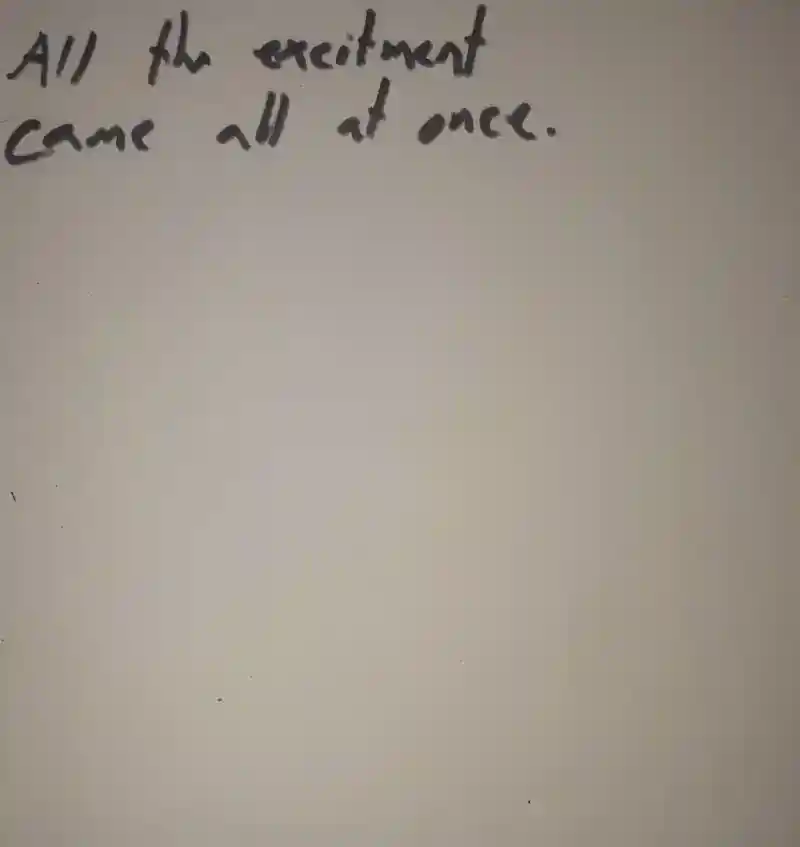 All the excitment
came all at once.